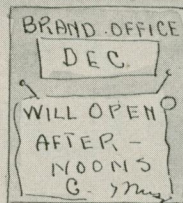 BRAND OFFICE
DEC.
WILL OPEN
AFTER-
NOONS
G.